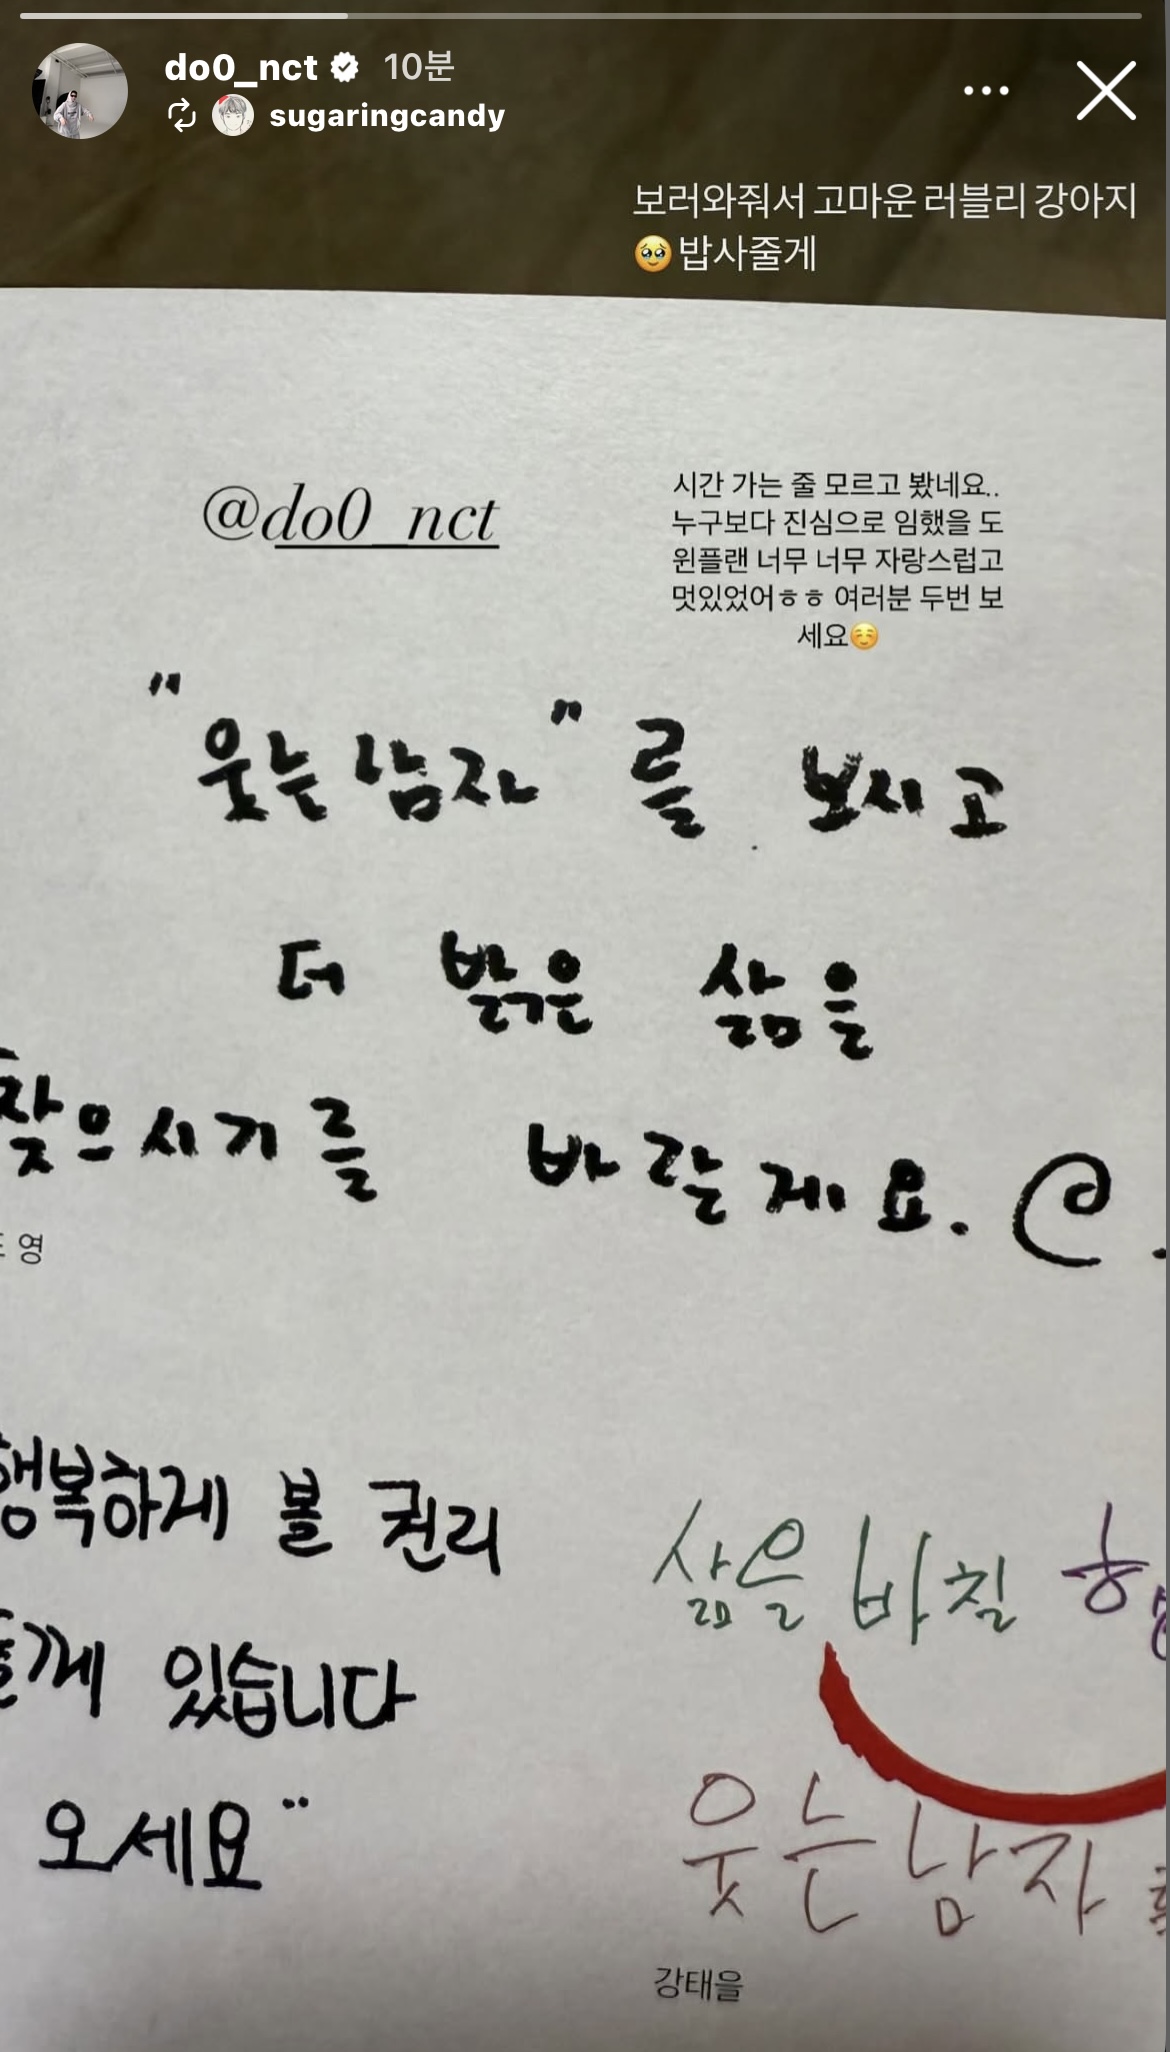 do0_nct 10분
sugaringcandy
보러와줘서 고마운 러블리 강아지
🥹밥사줄게
@do0_nct
시간 가는 줄 모르고 봤네요..
누구보다 진심으로 임했을 도
윈플랜 너무 너무 자랑스럽고
멋있었어ㅎㅎ 여러분 두번 보
세요☺️
"웃는 남자"를 보시고
더 밝은 삶을
찾으시기를 바랄게요.
영
행복하게 볼 권리
있습니다
오세요
삶을 바칠
웃는 남자
강태을